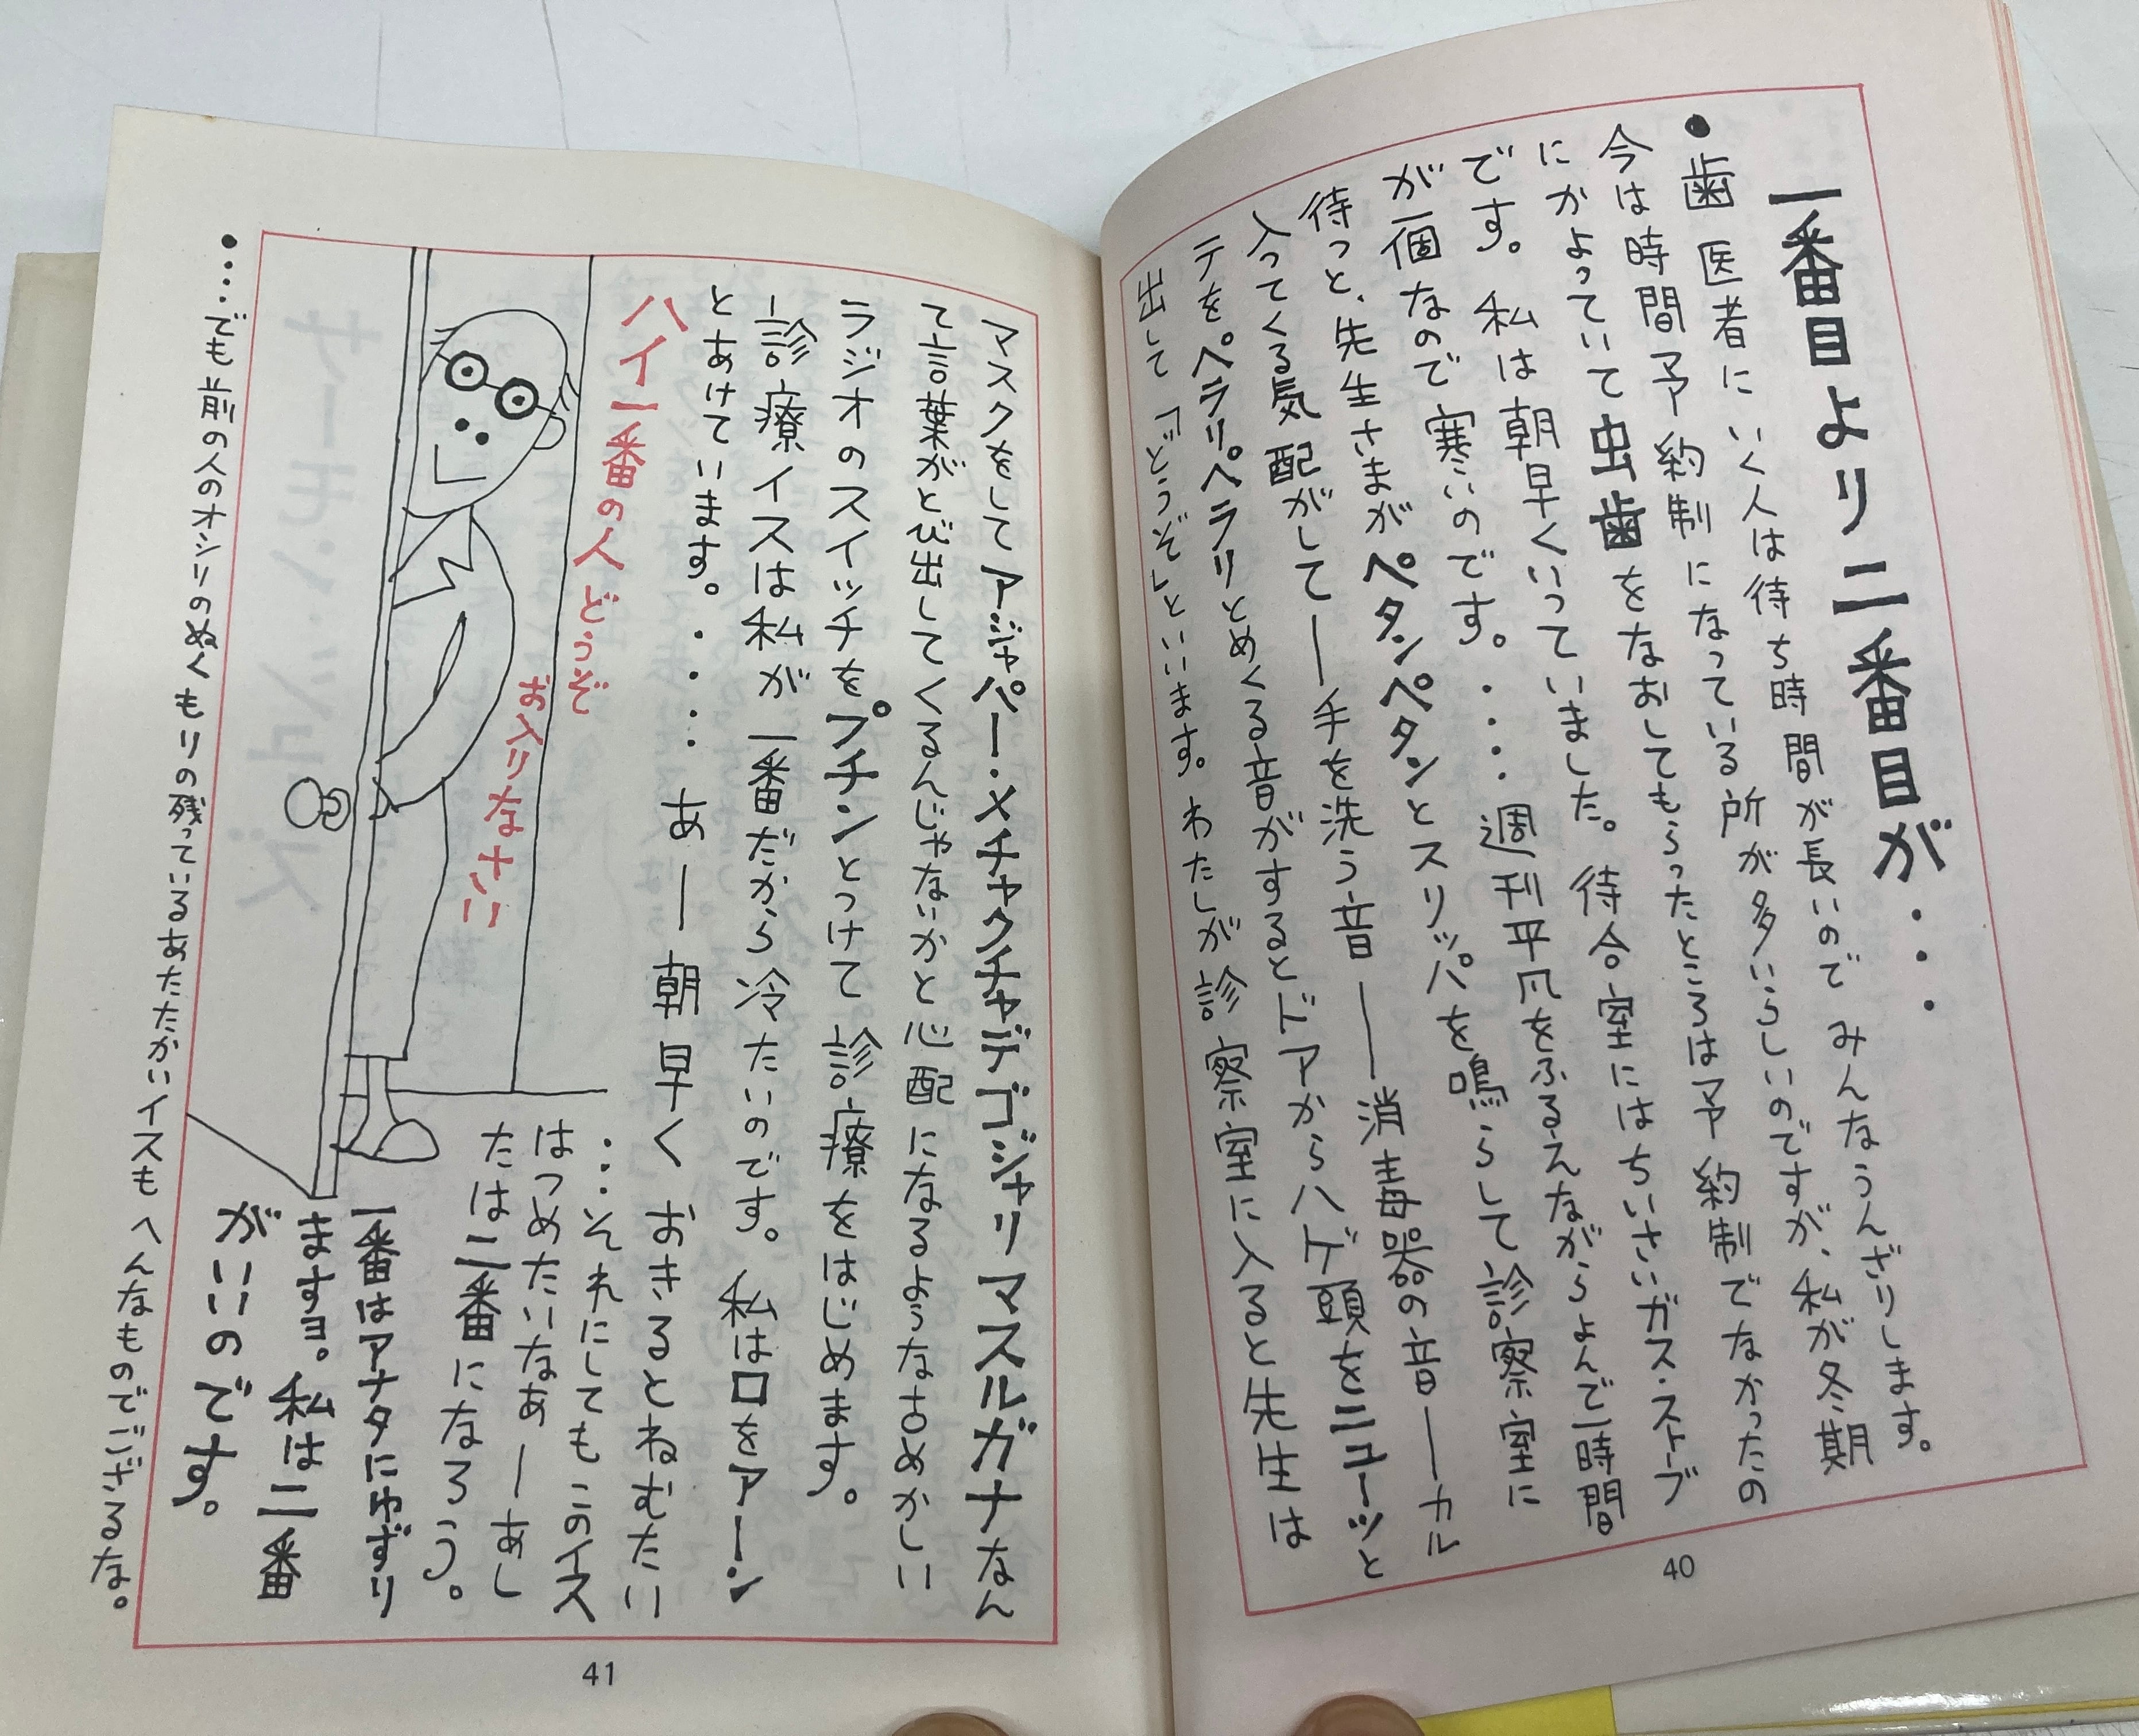 一番目より二番目が・・・
●歯医者にいく人は待ち時間が長いのでみんなうんざりします。
今は時間予約制になっている所が多いらしいのですが、私が冬期
にかよっていて虫歯をなおしてもらったところは予約制でなかったの
です。私は朝早くいっていました。待合室にはちいさいガス・ストーブ
が一個なので寒いのです。・・・・週刊平凡をふるえながらよんで一時間
待つと、先生さまがペタンペタンとスリッパを鳴らして診察室に
入ってくる気配がして――手を洗う音――消毒器の音――カル
テを。ペラリペラリとめくる音がするとドアからハゲ頭をニューッと
出して「どうぞ」といいます。わたしが診察室に入ると先生は
40
マスクをしてアジャパー・メチャクチャデゴジャリマスルガナなん
て言葉がとび出してくるんじゃないかと心配になるような古めかしい
ラジオのスイッチをプチンとつけて診療をはじめます。
診療イスは私が一番だから冷たいのです。私は口をアーン
とあけています。・・・・あー朝早くおきるとねむたい
・・・それにしてもこのイス
はつめたいなあーあし
たは二番になろう。
一番はアナタにゆずり
ますョ。私は二番
がいいのです。
ハイ一番の人どうぞ
お入りなさい
●・・・・でも前の人のオシリのぬくもりの残っているあたたかいイスもへんなものでござるな。
41